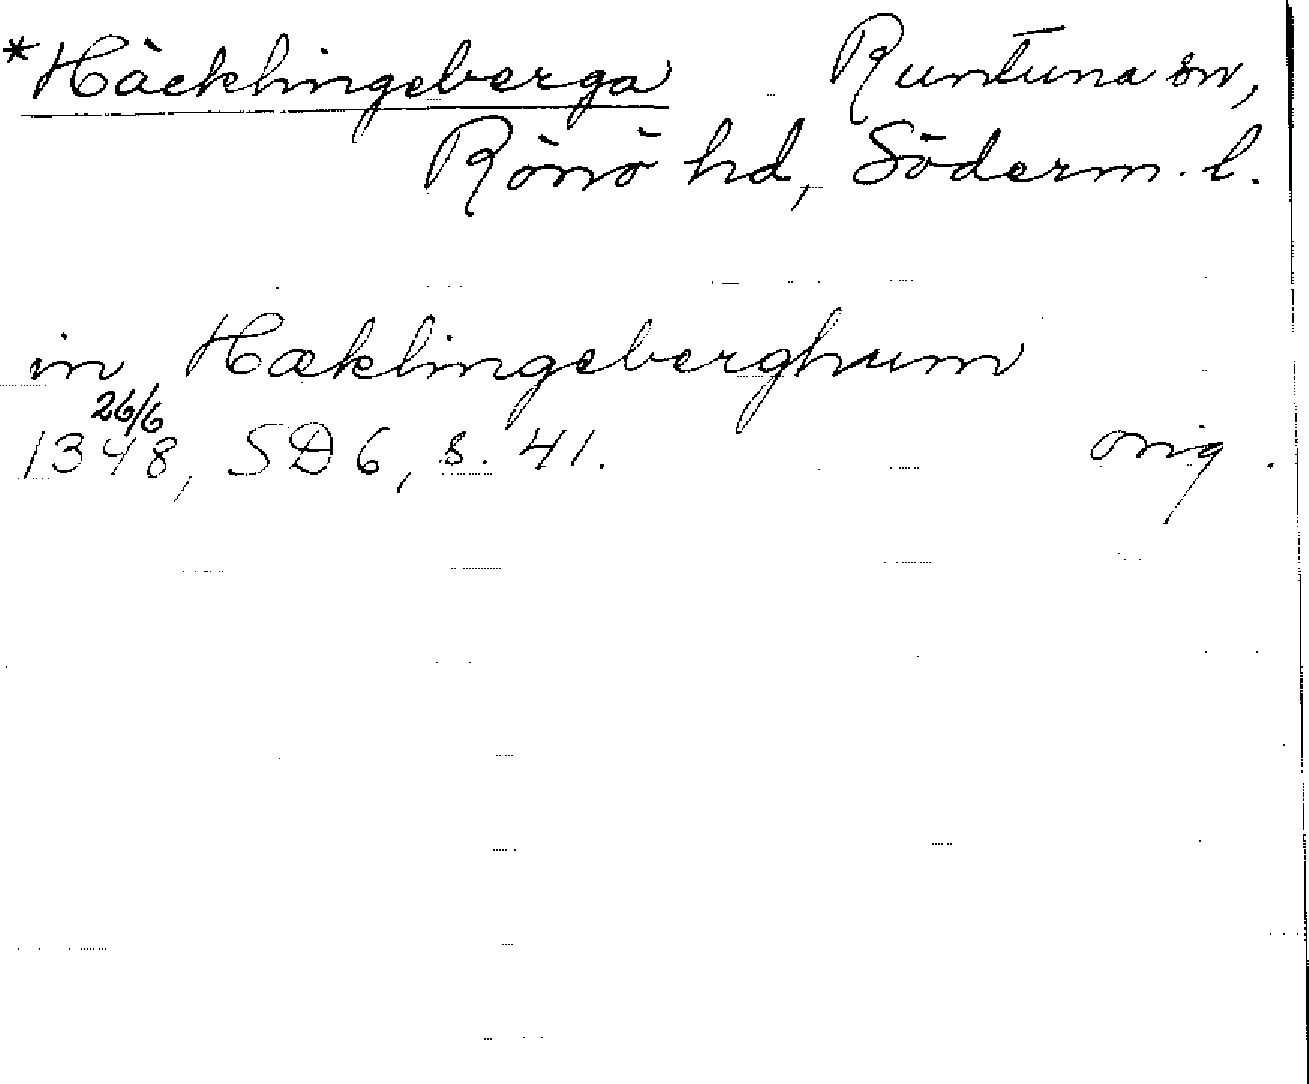 *Häcklingeberga Runtuna sn,
Rönö hd, Söderm. l.
in Hæklingeberghum
26/6
1348, SD 6, s. 41. orig.